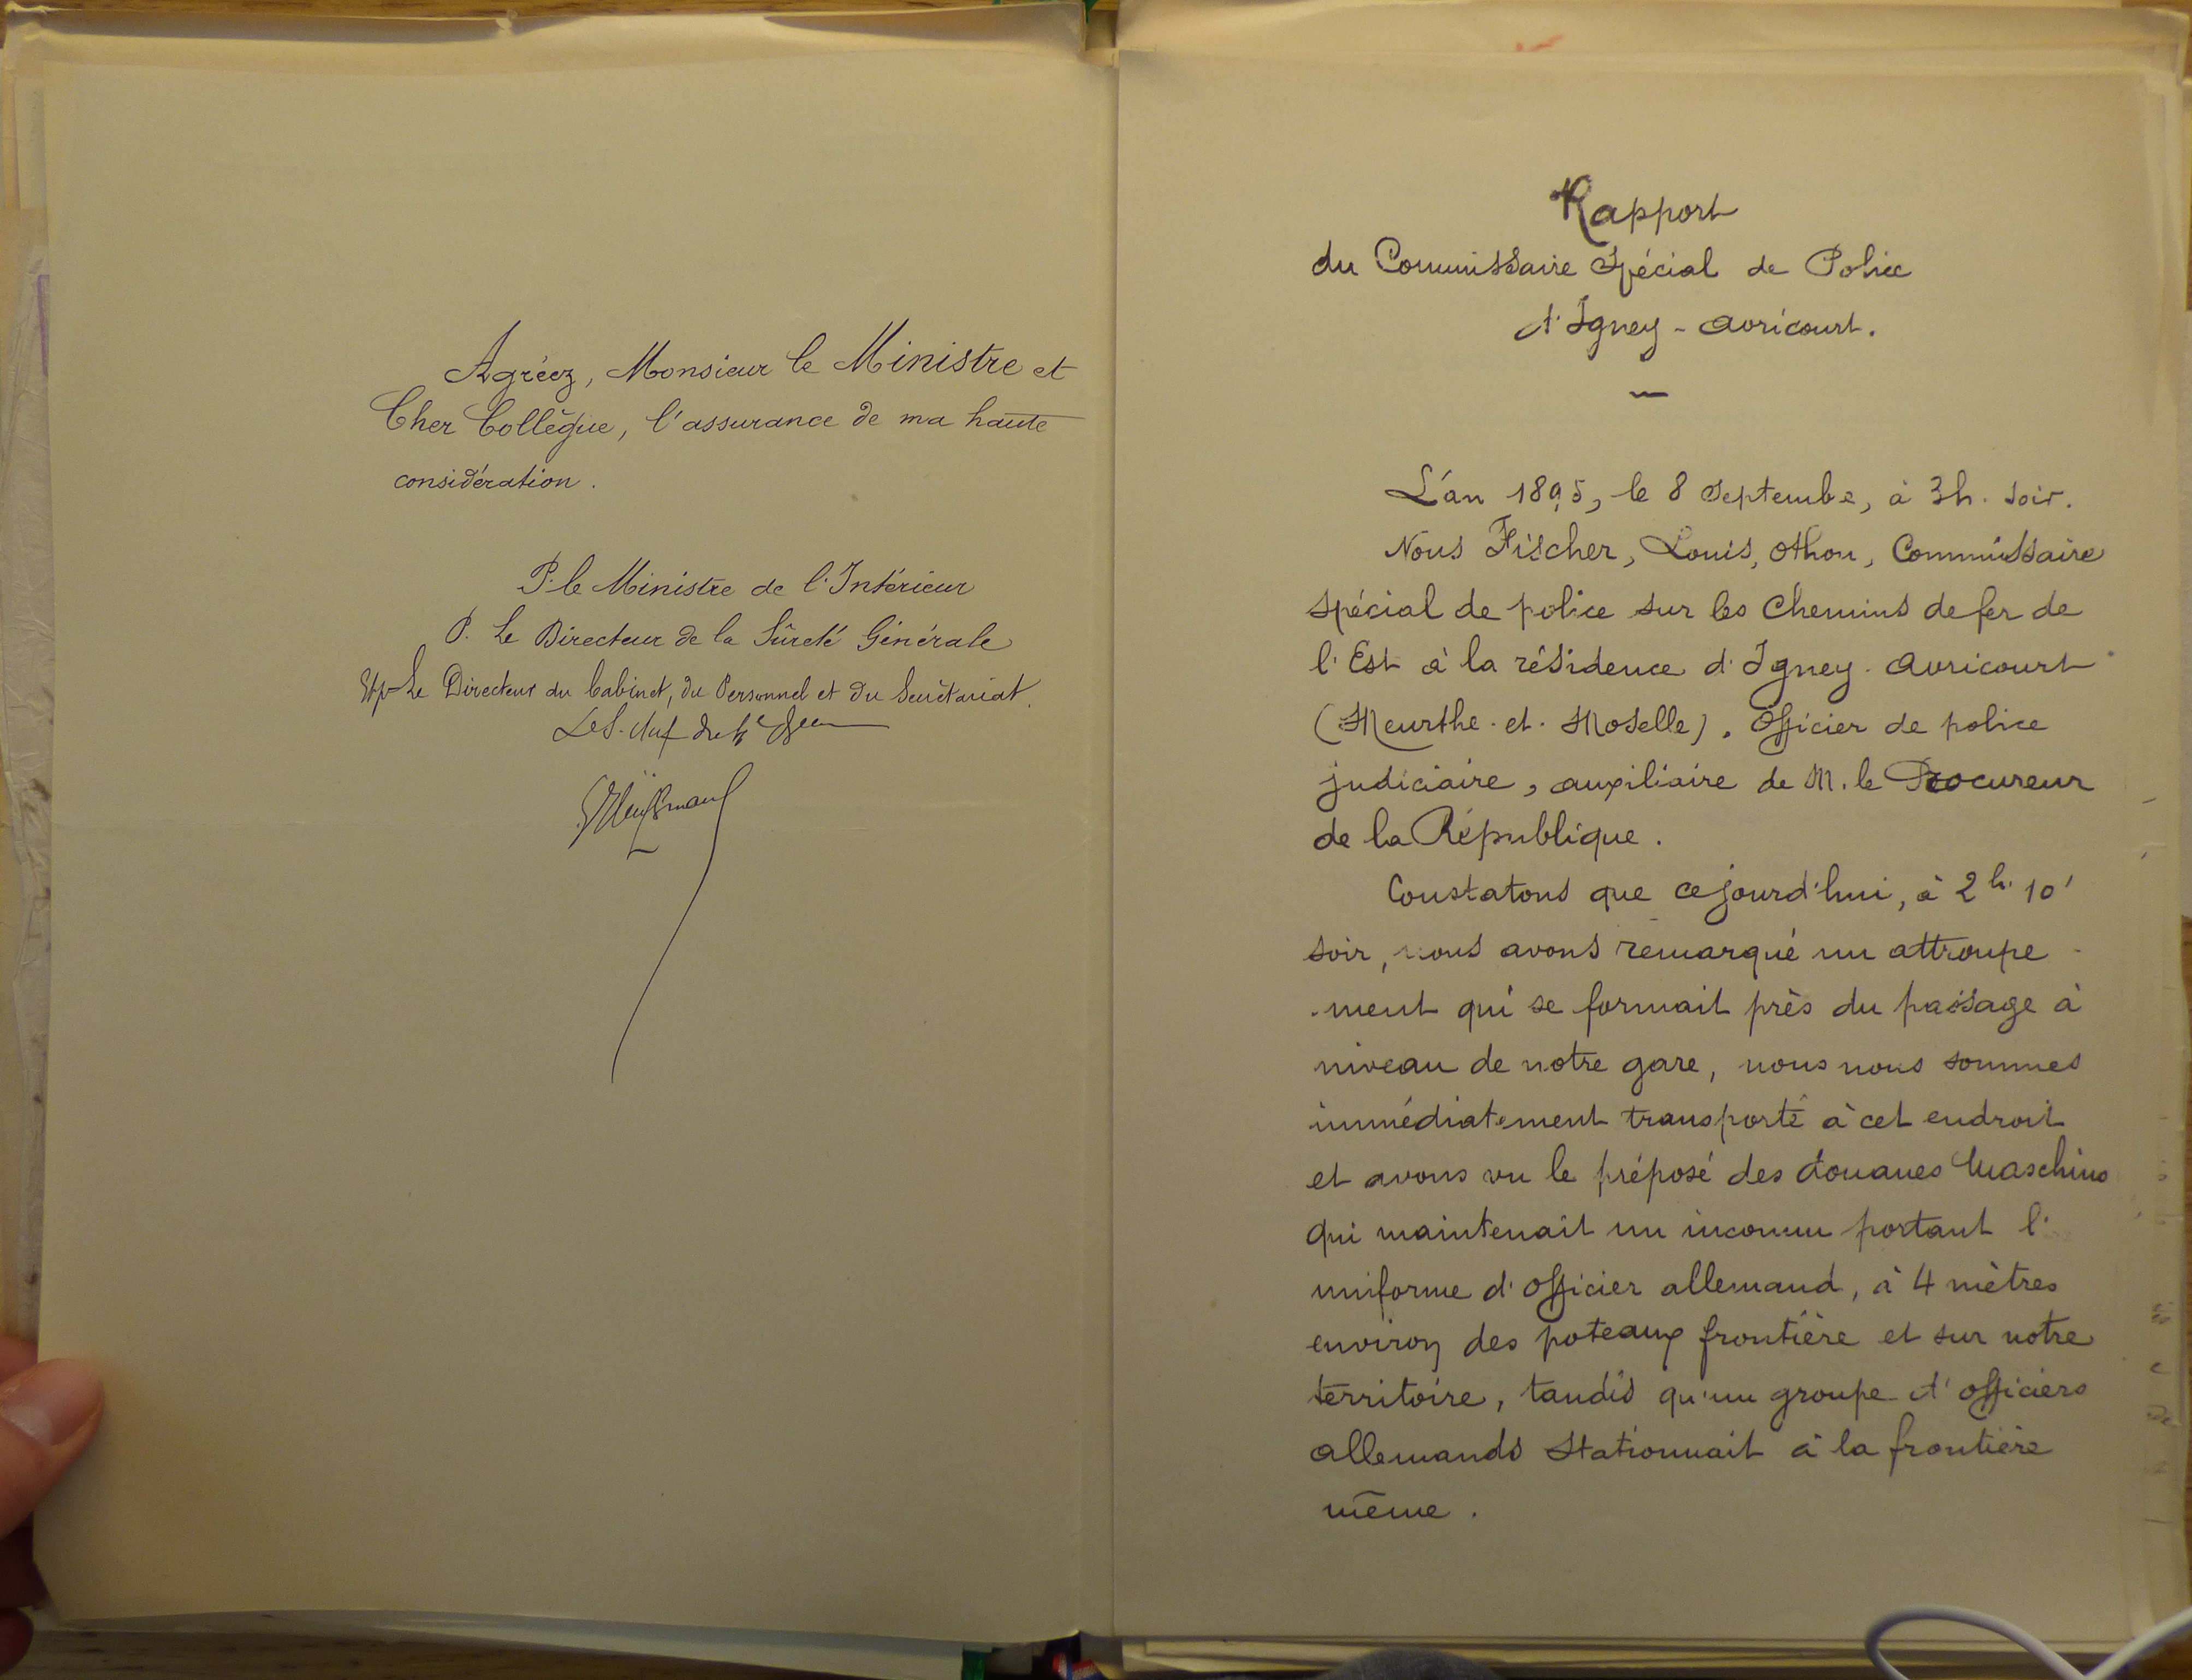 Agréez, Monsieur le Ministre et
Cher Collègue, l'assurance de ma haute
considération.
P. le Ministre de l'Intérieur
P. Le Directeur de la Sûreté Générale
Le Directeur du Cabinet, du Personnel et du Secrétariat.
Le S. Chef du
Rapport
du Commissaire Spécial de Police
d'Igney-Avricourt.
L'an 1895, le 8 Septembre, à 3h. soir.
Nous Fischer, Louis, Othon, Commissaire
spécial de police sur les Chemins de fer de
l'Est à la résidence d'Igney-Avricourt
(Meurthe-et-Moselle), Officier de police
judiciaire, auxiliaire de M. le Procureur
de la République.
Constatons que cejourd'hui, à 2h. 10'
soir, nous avons remarqué un attroupe-
-ment qui se formait près du passage à
niveau de notre gare, nous nous sommes
immédiatement transporté à cet endroit
et avons vu le préposé des douanes
qui maintenait un inconnu portant l'
uniforme d'officier allemand, à 4 mètres
environ des poteaux frontière et sur notre
territoire, tandis qu'un groupe d'officiers
allemands stationnait à la frontière
même.